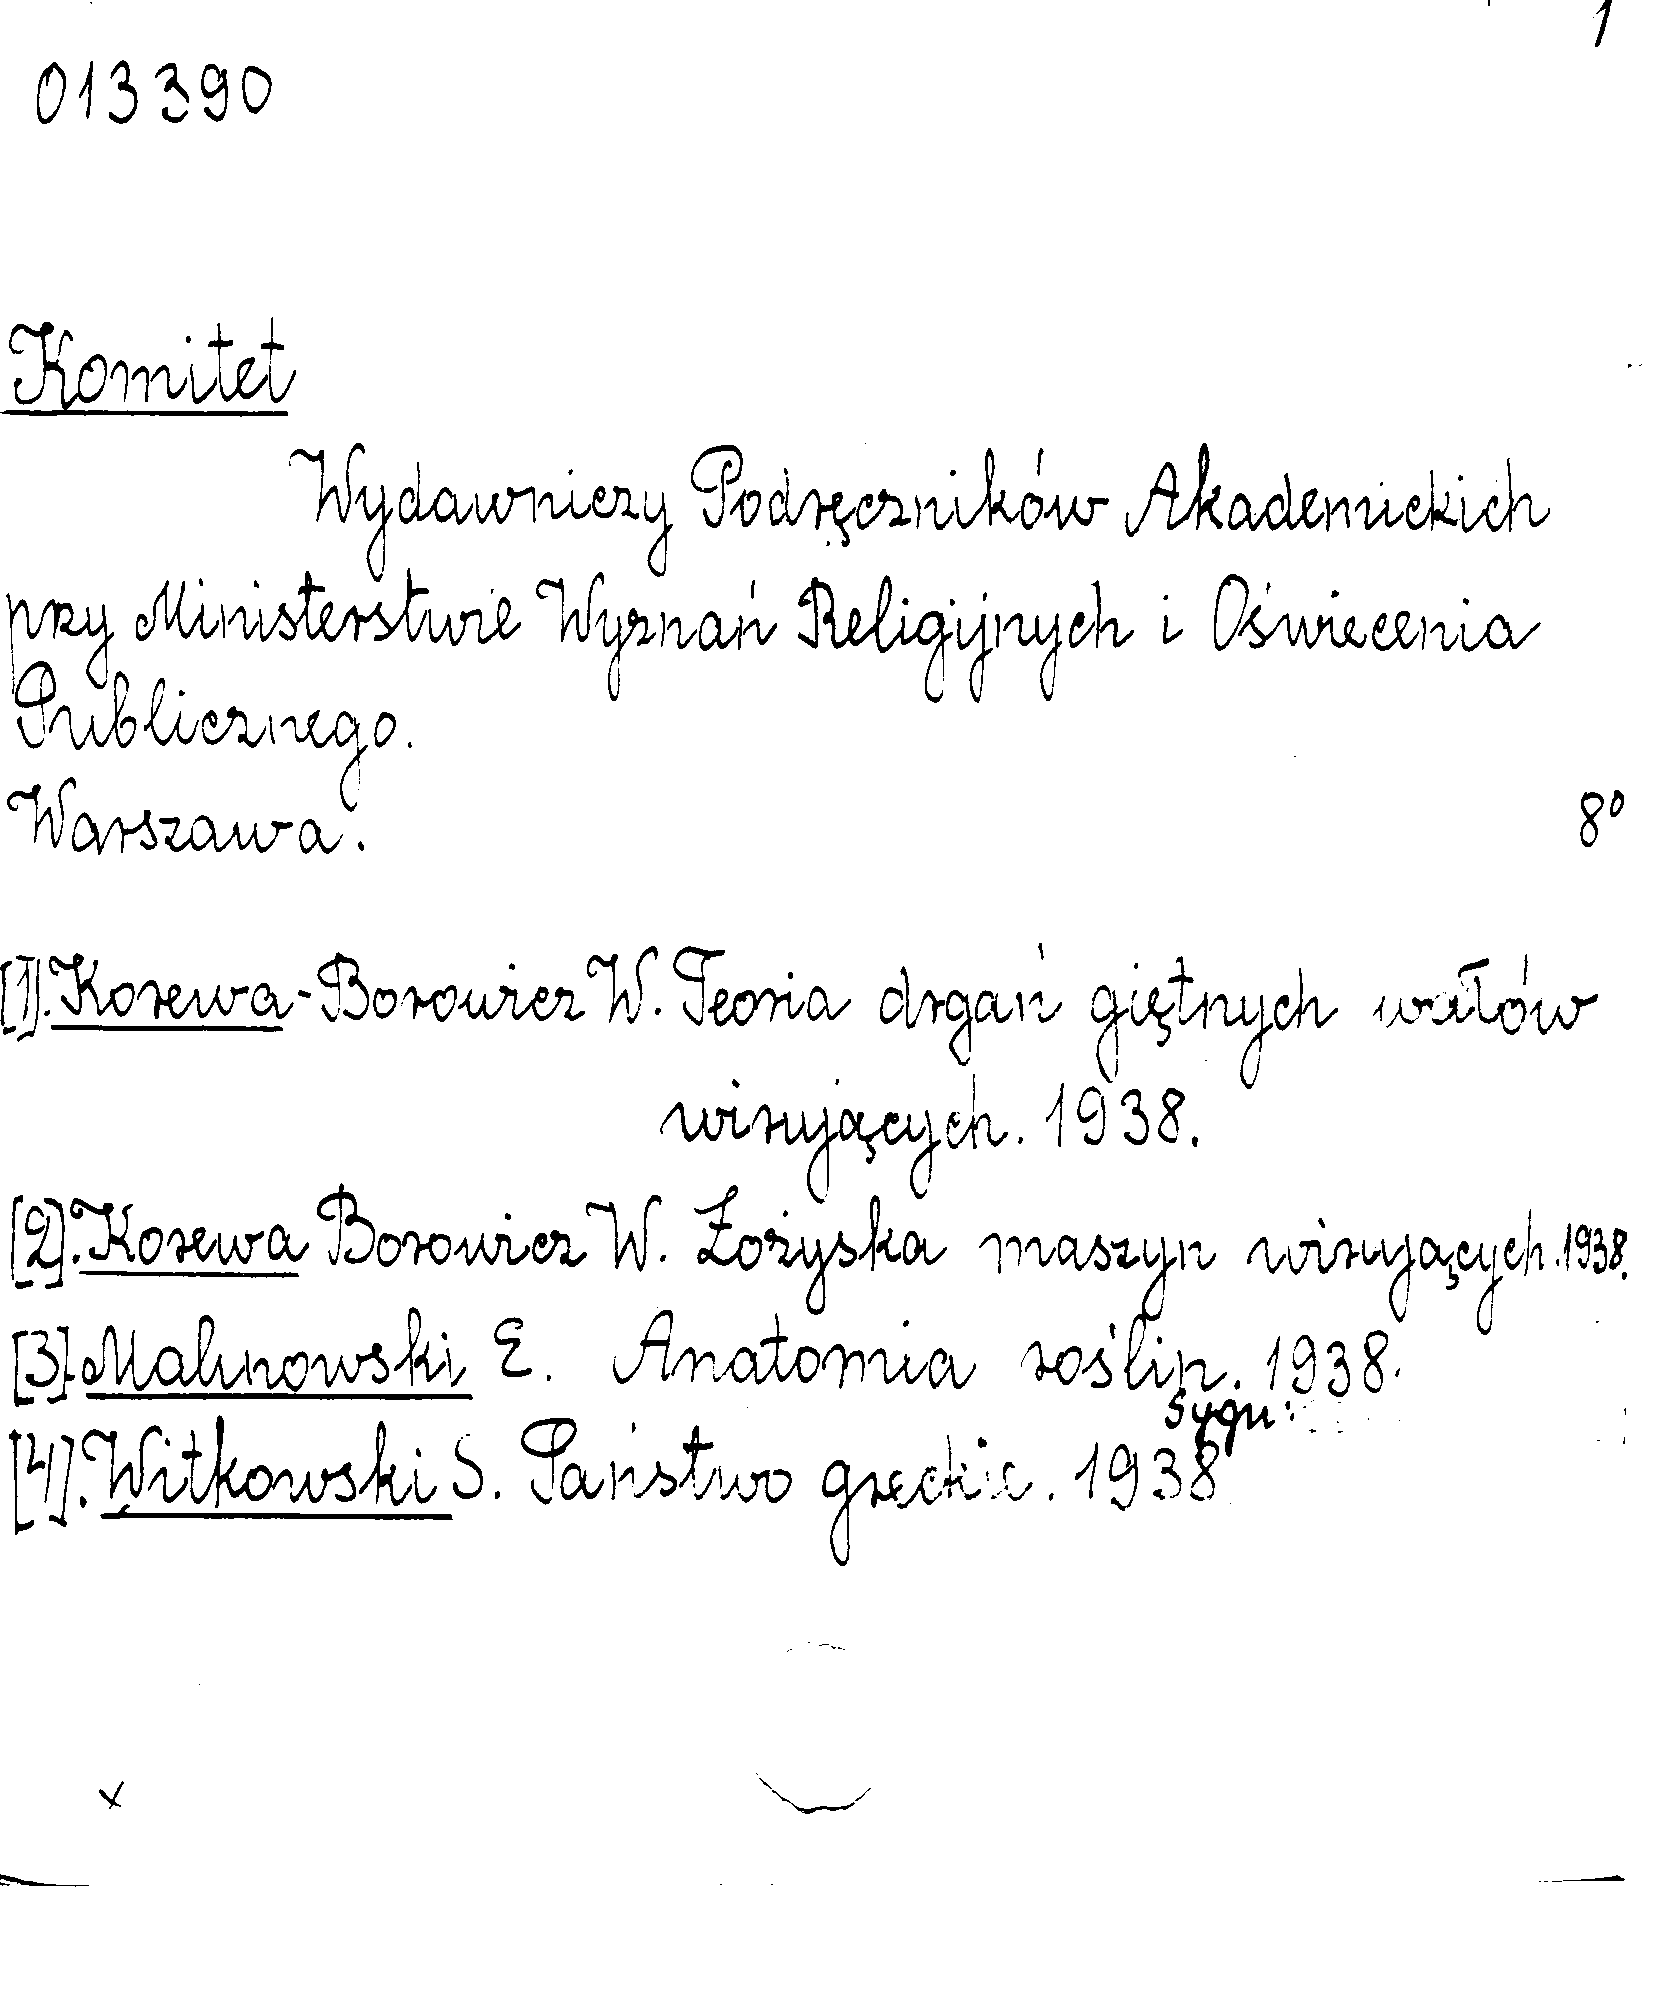 1
013390
Komitet
Wydawniczy Podręczników Akademickich
przy Ministerstwie Wyznań Religijnych i Oświecenia
Publicznego.
Warszawa. 8°
[1]. Korewa-Borowicz W. Teoria drgań giętnych wałów
wirujących. 1938.
[2]. Korewa Borowicz W. Łożyska maszyn wirujących. 1938.
[3]. Malinowski E. Anatomia roślin. 1938.
sygn:
[4]. Witkowski S. Państwo greckie. 1938
x